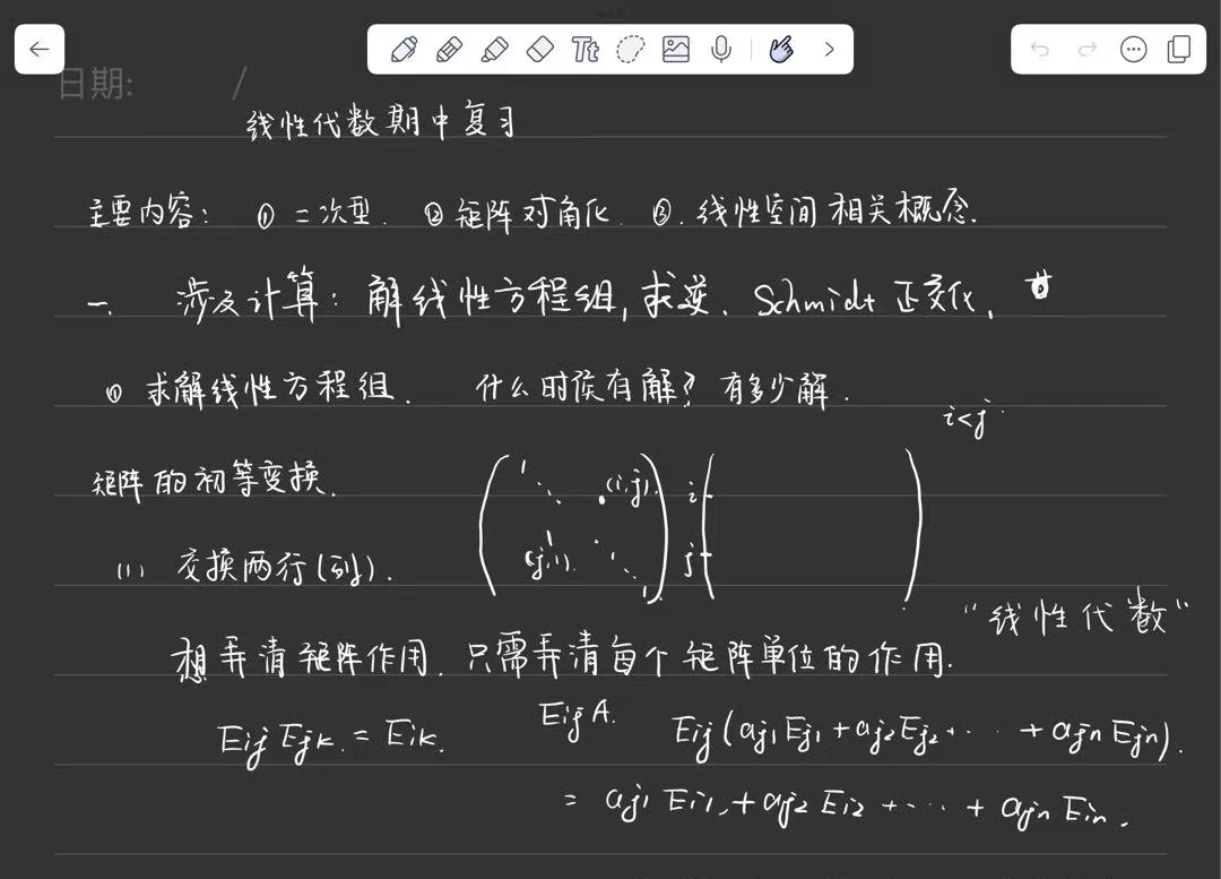 Tt
日期: /
线性代数期中复习
主要内容: ① 二次型. ② 矩阵对角化. ③. 线性空间相关概念.
一. 涉及计算: 解线性方程组, 求逆. Schmidt 正交化,
① 求解线性方程组. 什么时候有解? 有多少解.
i<j.
矩阵的初等变换.
1 (i,j). i
(1) 交换两行(列). (j,i). 1 j
"线性代数"
想弄清矩阵作用. 只需弄清每个矩阵单位的作用.
Eij Ejk. = Eik. EijA. Eij(aj1Ej1+aj2Ej2+···+ajnEjn).
= aj1 Ei1,+aj2 Ei2 +···+ ajn Ein.